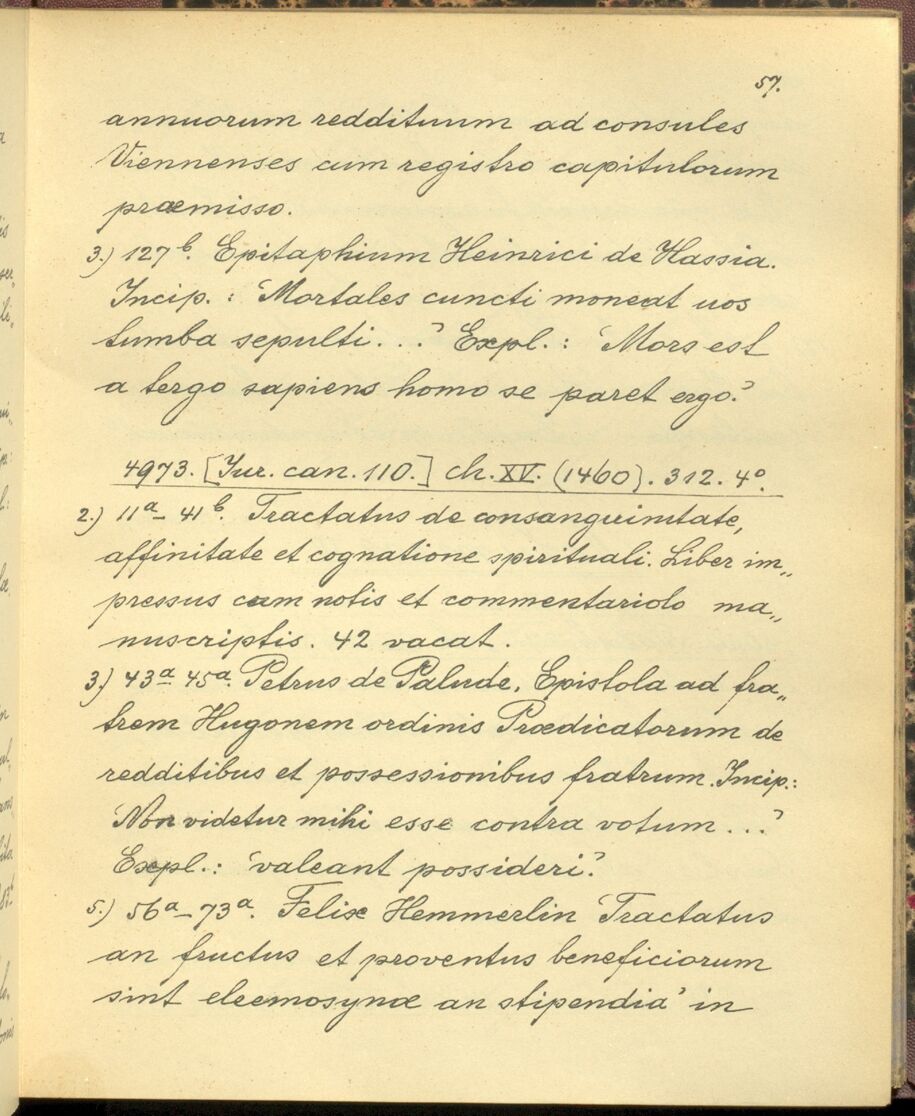 57.
annuorum reddituum ad consules
Viennenses cum registro capitulorum
præmisso.
3.) 127ᵇ. Epitaphium Heinrici de Hassia.
Incip. : 'Mortales cuncti moneat uos
tumba sepulti...' Expl. : 'Mors est
a tergo sapiens homo se paret ergo.'
4973. [Iur. can. 110.] ch. XV. (1460). 312. 4°.
2.) 11ᵃ–41ᵇ. Tractatus de consanguinitate,
affinitate et cognatione spirituali. Liber im„
pressus cum notis et commentariolo ma„
nuscriptis. 42 vacat.
3.) 43ᵃ–45ᵃ. Petrus de Palude, Epistola ad fra„
trem Hugonem ordinis Prædicatorum de
redditibus et possessionibus fratrum. Incip.:
'Non videtur mihi esse contra votum ...'
Expl. : 'valeant possideri.'
5.) 56ᵃ–73ᵃ. Felix Hemmerlin 'Tractatus
an fructus et proventus beneficiorum
sint eleemosynæ an stipendia' in